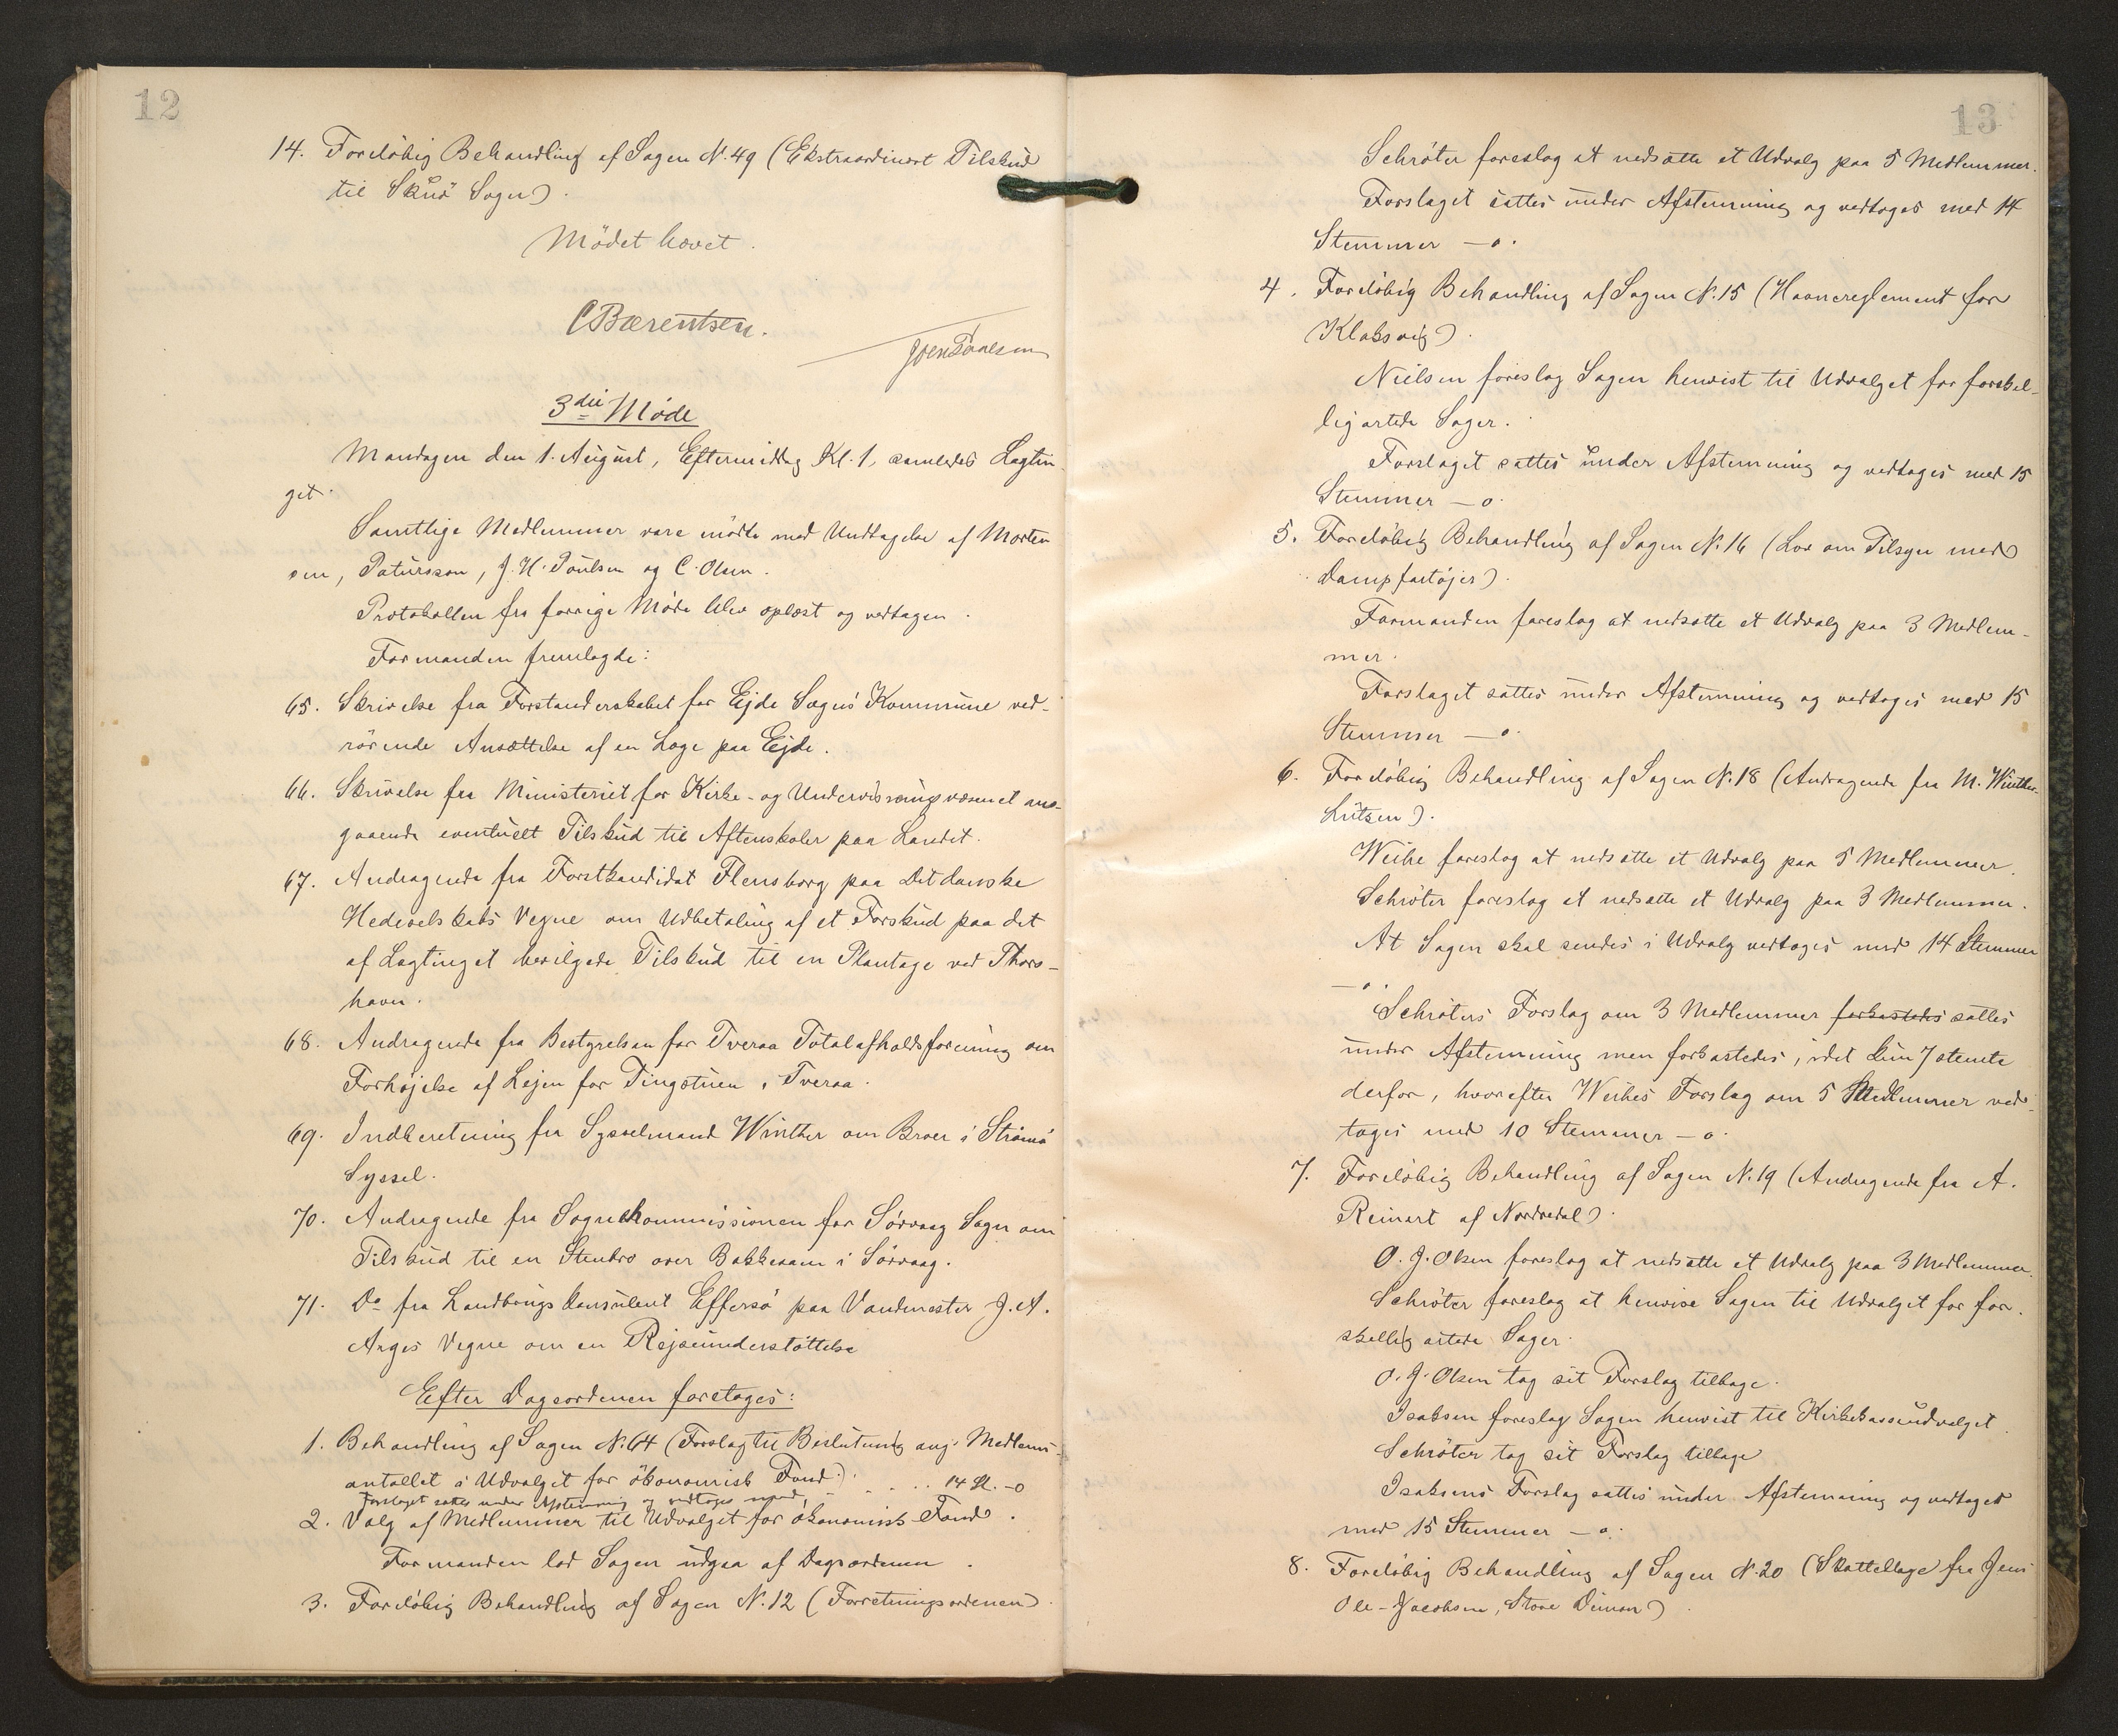 12
14. Foreløbig Behandling af Sagen N. 49 (Ekstraordinært Tilskud
til Skuø Sogn).
Mødet hævet.
C Bærentsen.
Joen Poulsen
3die Møde
Mandagen den 1. August, Eftermiddag Kl. 1, samledes Lagtin-
get.
Samtlige Medlemmer vare mødte med Undtagelse af Morten
sen, Patursson, J. H. Poulsen og C. Olsen.
Protokollen fra forrige Møde blev oplæst og vedtagen.
Formanden fremlagde:
65. Skrivelse fra Forstanderskabet for Ejde Sogns Kommune ved-
rørende Ansættelse af en Læge paa Ejde.
66. Skrivelse fra Ministeriet for Kirke- og Undervisningsvæsenet an-
gaaende eventuelt Tilskud til Aftenskoler paa Landet.
67. Andragende fra Forstkandidat Flensborg paa Det danske
Hedeselskabs Vegne om Udbetaling af et Forskud paa det
af Lagtinget bevilgede Tilskud til en Plantage ved Thors-
havn.
68. Andragende fra Bestyrelsen for Tveraa Totalafholdsforening om
Forhøjelse af Lejen for Tingstuen i Tveraa.
69. Indberetning fra Sysselmand Winther om Broer i Strømø
Syssel.
70. Andragende fra Sognekommissionen for Sørvaag Sogn om
Tilskud til en Stenbro over Bakkeaaen i Sørvaag.
71. Do fra Landbrugskonsulent Effersø paa Vandmester J. A.
Arges Vegne om en Rejseunderstøttelse
Efter Dagsordenen foretages:
1. Behandling af Sagen N. 64 (Forslag til Beslutning ang. Medlems-
antallet i Udvalget for økonomisk Fond). . . . . 14 St. -0
Forslaget sattes under Afstemning og vedtoges med
2. Valg af Medlemmer til Udvalget for økonomisk Fond.
Formanden lod Sagen udgaa af Dagsordenen.
3. Foreløbig Behandling af Sagen N. 12 (Forretningsordenen).
13
Schrøter foreslog at nedsætte et Udvalg paa 5 Medlemmer.
Forslaget sattes under Afstemning og vedtoges med 14
Stemmer - 0.
4. Foreløbig Behandling af Sagen N. 15 (Havnereglement for
Klaksvig).
Nielsen foreslog Sagen henvist til Udvalget for forskel-
ligartede Sager.
Forslaget sattes under Afstemning og vedtoges med 15
Stemmer - 0.
5. Foreløbig Behandling af Sagen N. 16 (Lov om Tilsyn med
Dampfartøjer).
Formanden foreslog at nedsætte et Udvalg paa 3 Medlem-
mer.
Forslaget sattes under Afstemning og vedtoges med 15
Stemmer - 0.
6. Foreløbig Behandling af Sagen N. 18 (Andragende fra M. Winther-
Lützen).
Weihe foreslog at nedsætte et Udvalg paa 5 Medlemmer.
Schrøter foreslog at nedsætte et Udvalg paa 3 Medlemmer.
At Sagen skal sendes i Udvalg vedtoges med 14 Stemmer
- 0.
Schrøters Forslag om 3 Medlemmer forkastedes sattes
under Afstemning men forkastedes, idet kun 7 stemte
derfor, hvorefter Weihes Forslag om 5 Medlemmer ved-
toges med 10 Stemmer - 0.
7. Foreløbig Behandling af Sagen N. 19 (Andragende fra A.
Reinert af Nordredal).
O. J. Olsen foreslog at nedsætte et Udvalg paa 3 Medlemmer.
Schrøter foreslog at henvise Sagen til Udvalget for for-
skellig artede Sager.
O. J. Olsen tog sit Forslag tilbage.
Isaksen foreslog Sagen henvist til Kirkekasseudvalget.
Schrøter tog sit Forslag tilbage
Isaksens Forslag sattes under Afstemning og vedtoges
med 15 Stemmer - 0.
8. Foreløbig Behandling af Sagen N. 20 (Skatteklage fra Jens
Ole-Jacobsen, Store Dimon)